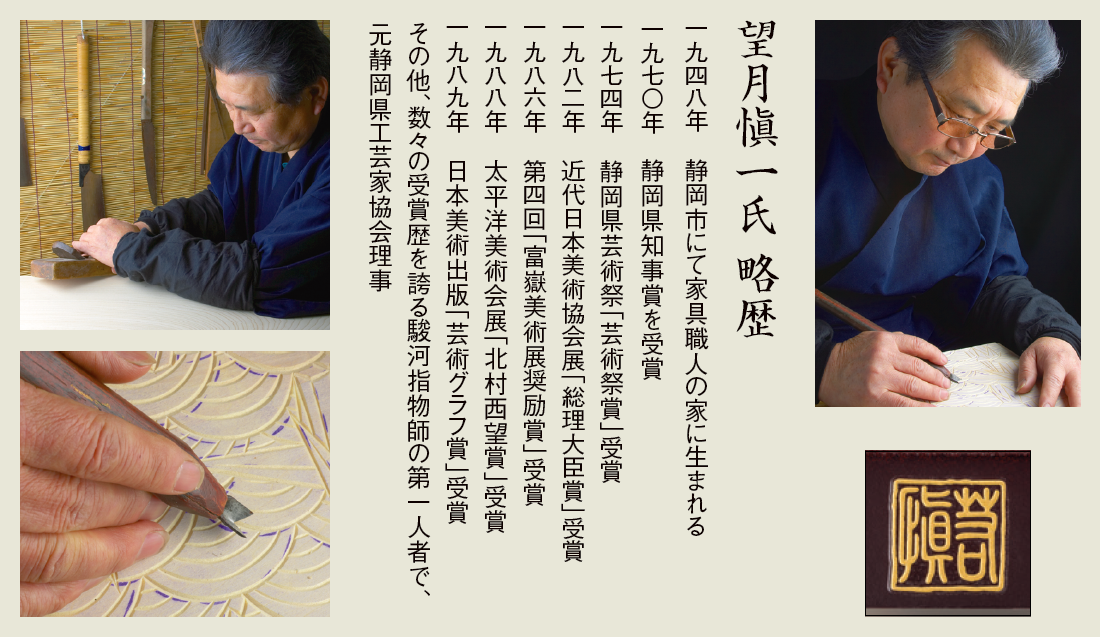 望月愼一氏 略歴
一九四八年 静岡市にて家具職人の家に生まれる
一九七〇年 静岡県知事賞を受賞
一九七四年 静岡県芸術祭「芸術祭賞」受賞
一九八二年 近代日本美術協会展「総理大臣賞」受賞
一九八六年 第四回「富嶽美術展奨励賞」受賞
一九八八年 太平洋美術会展「北村西望賞」受賞
一九八九年 日本美術出版「芸術グラフ賞」受賞
その他、数々の受賞歴を誇る駿河指物師の第一人者で、
元静岡県工芸家協会理事